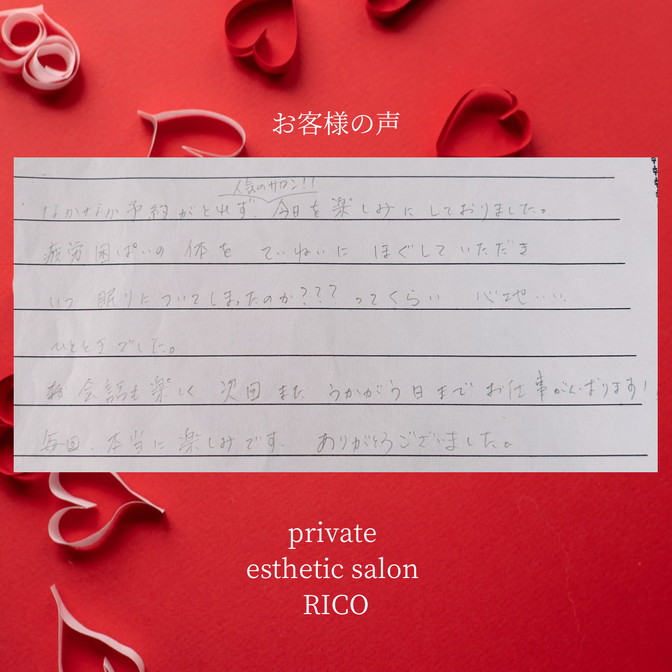 お客様の声
人気のサロン!!
なかなか予約がとれず、今日を楽しみにしておりました。
疲労困ぱいの体を ていねいに ほぐしていただき
いつ 眠りについてしまったのか???ってくらい 心地いい
ひとときでした。
会話も楽しく 次回また うかがう日まで お仕事がんばります!
毎回、本当に楽しみです。 ありがとうございました。
private
esthetic salon
RICO